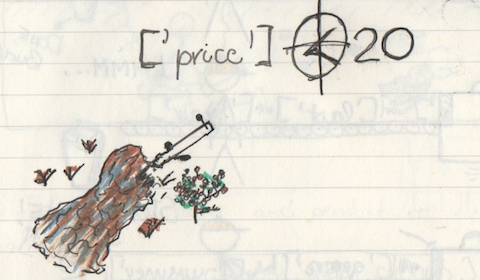 ['price'] < 20